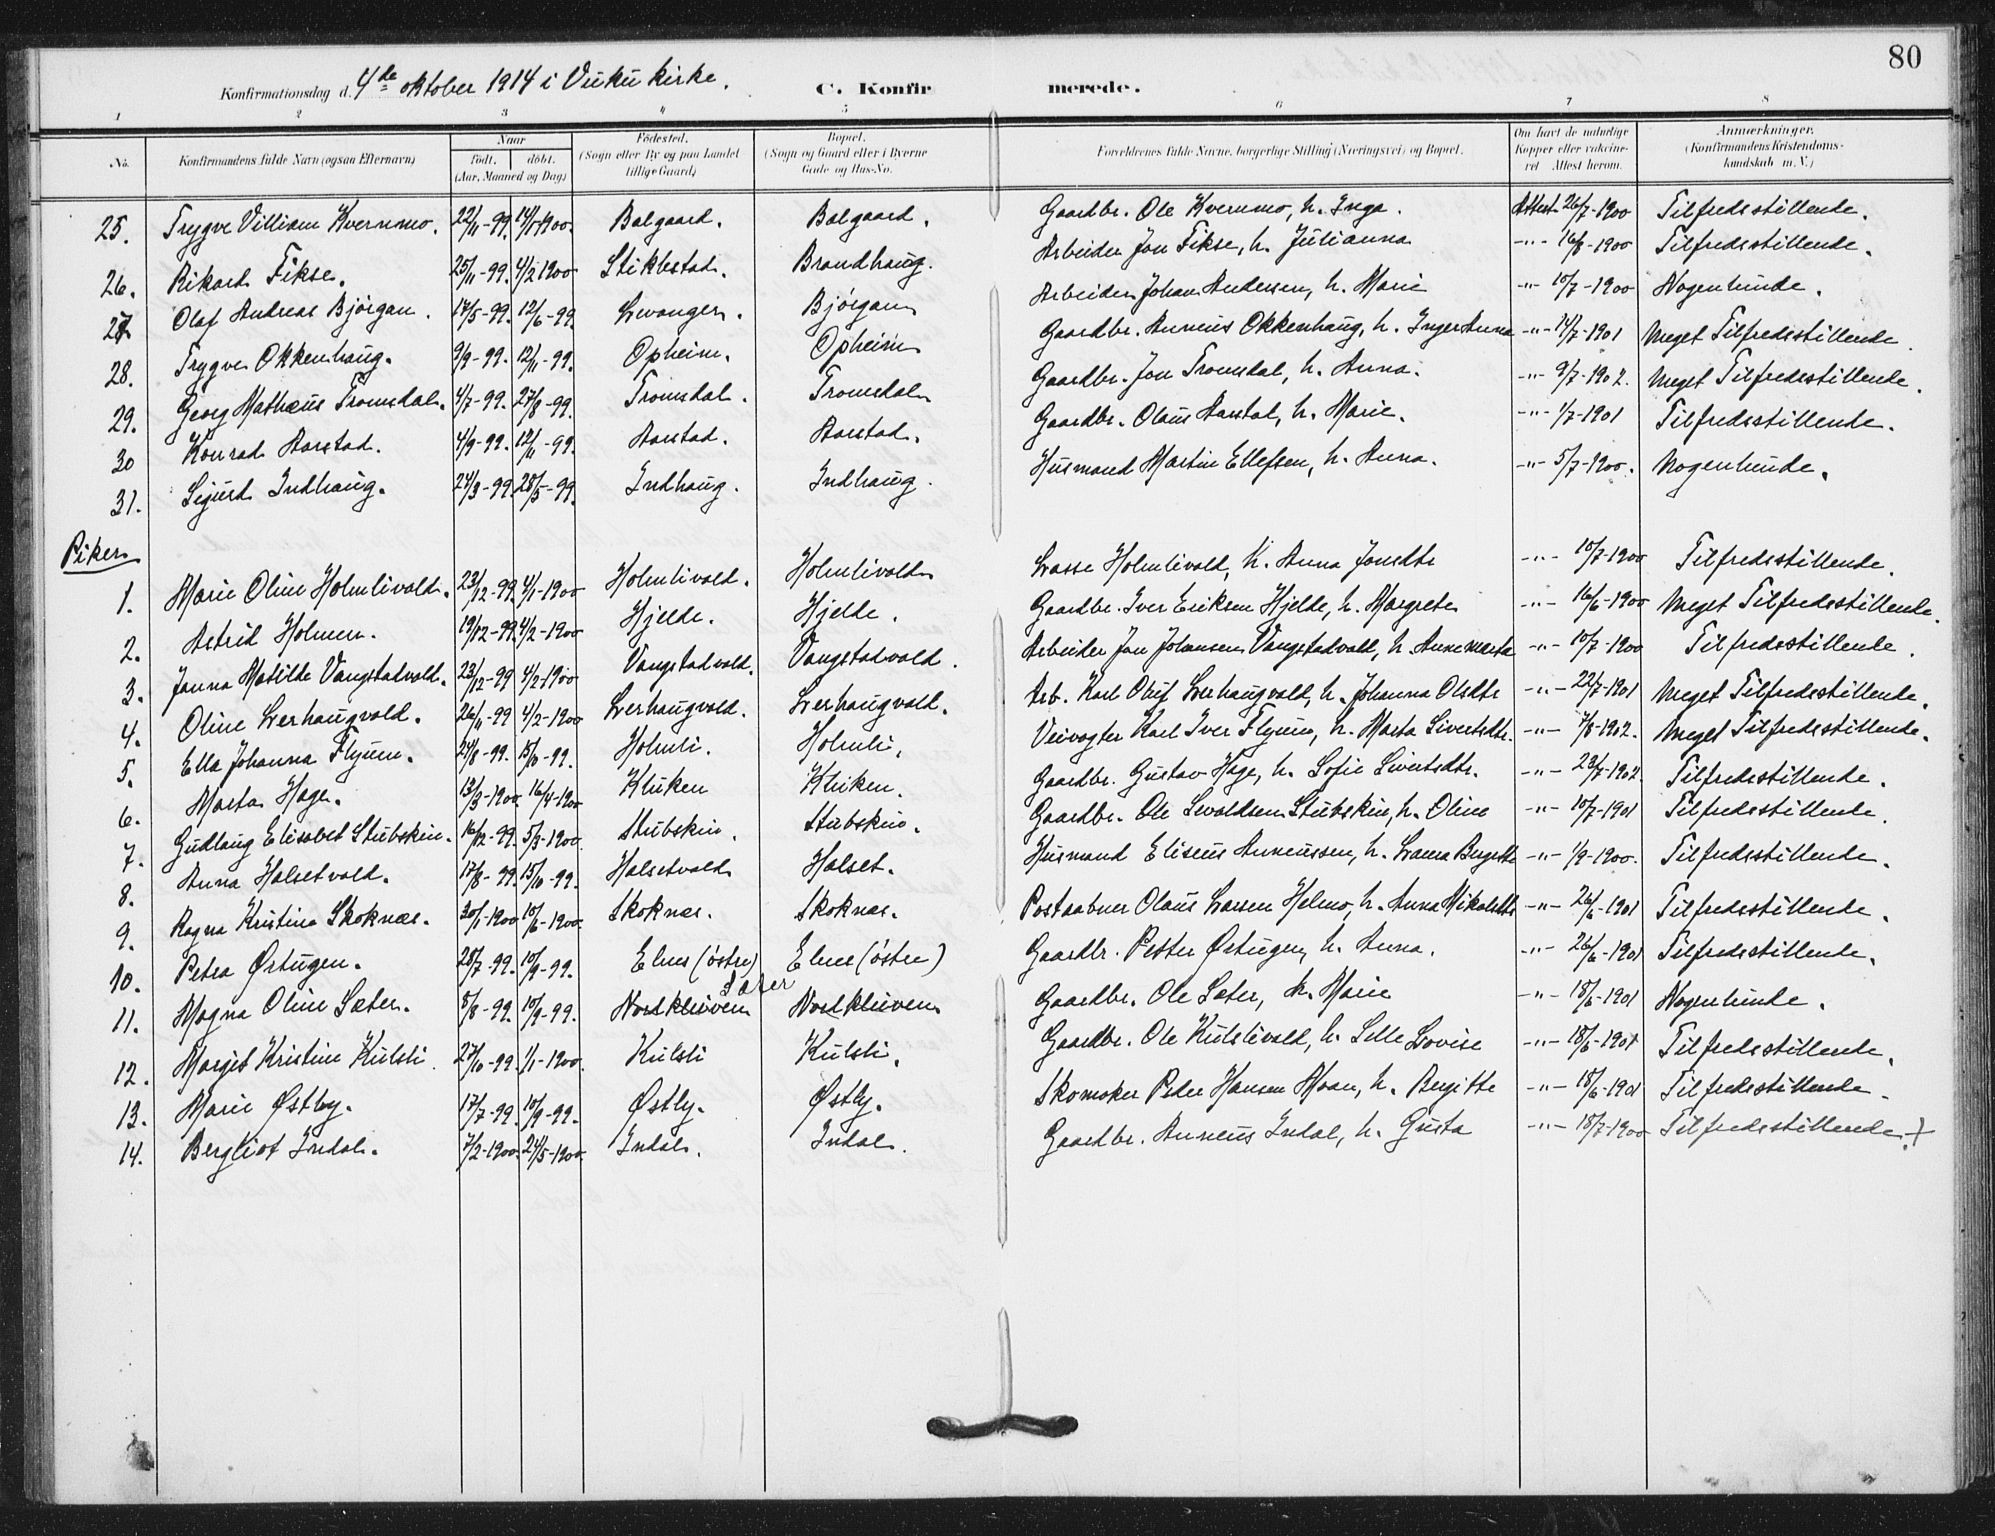 80
Konfirmationsdag d. 4de oktober 1914 i Vuku kirke. C. Konfirmerede.
1 2 3 4 5 6 7 8
No. Konfirmandens fulde Navn (ogsaa Efternavn) Naar født. døbt. (Aar, Maaned og Dag) Fødested. (Sogn eller By og paa Landet tillige Gaard) Bopæl. (Sogn og Gaard eller i Byerne Gade og Hus-No. Forældrenes fulde Navne, borgerlige Stilling (Næringsvei) og Bopæl. Om havt de naturlige Kopper eller vaccineret Attest herom. Anmærkninger. (Konfirmandens Kristendomskundskab m. V.)
25. Trygve Villiam Kvernmo. 22/11-99. 14/1-1900. Balgaard. Balgaard. Gaardbr. Ole Kvernmo, h. Inga. Attest 26/7-1900 Tilfredsstillende.
26. Rikard Fikse. 25/11-99. 4/2 1900 Stiklestad. Brandhaug. Arbeider Jon Fikse, h. Julianna -"- 16/8-1900 Tilfredsstillende.
27 Olaf Andreas Bjørgan. 17/5-99. 12/6-99. Levanger. Bjørgan Arbeider Johan Andersen, h. Marie -"- 10/7-1900 Nogenlunde.
28. Trygve Okkenhaug. 9/9-99. 12/11-99. Opheim. Opheim Gaardbr. Anneus Okkenhaug, h. Inger Anna -"- 14/7-1901 Meget Tilfredsstillende.
29. Georg Mathæus Tromsdal. 4/7-99. 27/8-99. Tromsdal. Tromsdal Gaardbr. Jon Tromsdal, h. Anna. -"- 9/7-1902. Meget Tilfredsstillende.
30 Konrad Aarstad. 4/9-99. 12/11-99. Aarstad. Aarstad. Gaardbr. Olaus Aarstad, h. Marie. -"- 1/7-1901 Tilfredsstillende.
31. Sigurd Indhaug. 24/3-99. 28/5-99. Indhaug. Indhaug. Husmand Martin Ellefsen, h. Anna. -"- 5/7-1900. Nogenlunde.
Piker
1. Marie Oline Holmlivald. 23/12-99. 4/1-1900 Holmlivald. Holmlivald Lasse Holmlivald, h. Anna Jonsdtr -"- 10/7-1900 Tilfredsstillende.
2. Astrid Holmen. 19/12-99. 4/2-1900 Hjelde. Hjelde. Gaardbr. Iver Eriksen Hjelde, h. Margrete -"- 16/6-1900 Meget Tilfredsstillende.
3. Janna Matilde Vangstadvald. 23/12-99 4/2-1900 Vangstadvald. Vangstadvald. Arbeider Jon Johansen Vangstadvald, h. Anne Marta -"- 10/7-1900 Tilfredsstillende.
4. Oline Lerhaugvald. 26/11-99 4/2-1900 Lerhaugvald. Lerhaugvald. Arb. Karl Oluf Lerhaugvald, h. Johanna Olsdtr -"- 22/7-1901 Meget Tilfredsstillende.
5. Ella Johanna Flyum. 24/8-99. 15/10-99. Holmli. Holmli. Veivogter Karl Iver Flyum, h. Marta Sivertsdtr. -"- 7/8-1902. Meget Tilfredsstillende.
6. Marta Hage. 13/3-1900. 16/4-1900 Kluken Kluken. Gaardbr. Gustav Hage, h. Sofie Sivertsdtr. -"- 23/7-1902. Tilfredsstillende.
7. Gudlaug Elisabet Stubskin. 16/12-99. 5/3-1900. Stubskin. Stubskin. Gaardbr. Ole Sivaldsen Stubskin, h. Oline -"- 10/7-1901 Tilfredsstillende.
8. Anna Halsetvald. 17/8-99. 15/10-99. Halsetvald Halset. Husmand Eliseus Anneussen, h. Laura Bergitte -"- 1/9-1900. Tilfredsstillende.
9. Ragna Kristina Skoknæs. 30/1-1900 10/6-1900. Skoknæs. Skoknæs. Postaabner Olaus Larsen Helmo, h. Anna Nikolsdtr -"- 26/6-1901 Tilfredsstillende.
10. Petra Østugen. 28/7-99. 10/9-99. Elnes (østre) Elnes (østre) Gaardbr. Petter Østugen, h. Anna. -"- 26/6-1901 Tilfredsstillende.
11. Magna Oline Sæter. 8/8-99. 10/9-99. Nordkleiven Nordkleiven Gaardbr. Ole Sæter, h. Marie -"- 18/6-1901 Nogenlunde.
12. Margit Kristine Kulsli. 27/10-99. 1/1-1900. Kulsli Kulsli. Gaardbr. Ole Kulslivald, h. Lovise -"- 18/6-1901 Tilfredsstillende.
13. Marie Østby. 17/7-99. 10/9-99. Østby. Østby. Skomaker Peder Hansen Moan, h. Bergitte -"- 18/6-1901 Tilfredsstillende.
14. Bergliot Indal. 7/2-1900. 24/5-1900. Indal. Indal. Gaardbr. Anneus Indal, h. Gusta -"- 18/7-1900 Tilfredsstillende. +